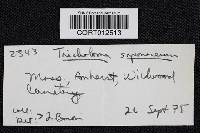 CORT012513
2343 Tricholoma saponaceum
Mass, Amherst, Wildwood
Cemetery
coll.
Det. > J. Baron 26 Sept 75